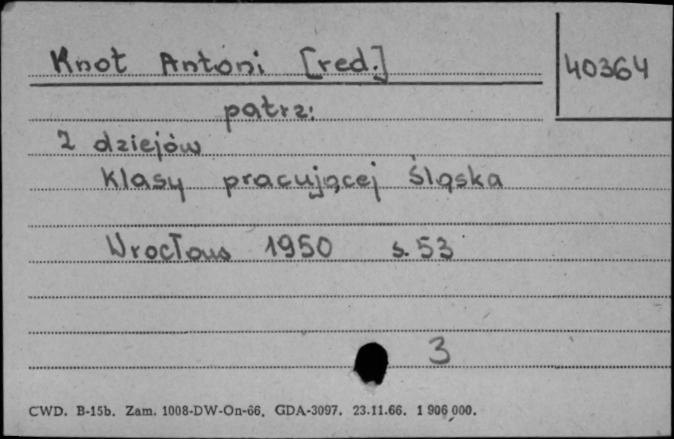 Knot Antoni [red.]
40364
patrz:
Z dziejów
Klasy pracującej Śląska
Wrocław 1950 s. 53
3
CWD. B-15b. Zam. 1008-DW-On-66. GDA-3097. 23.11.66. 1 906 000.